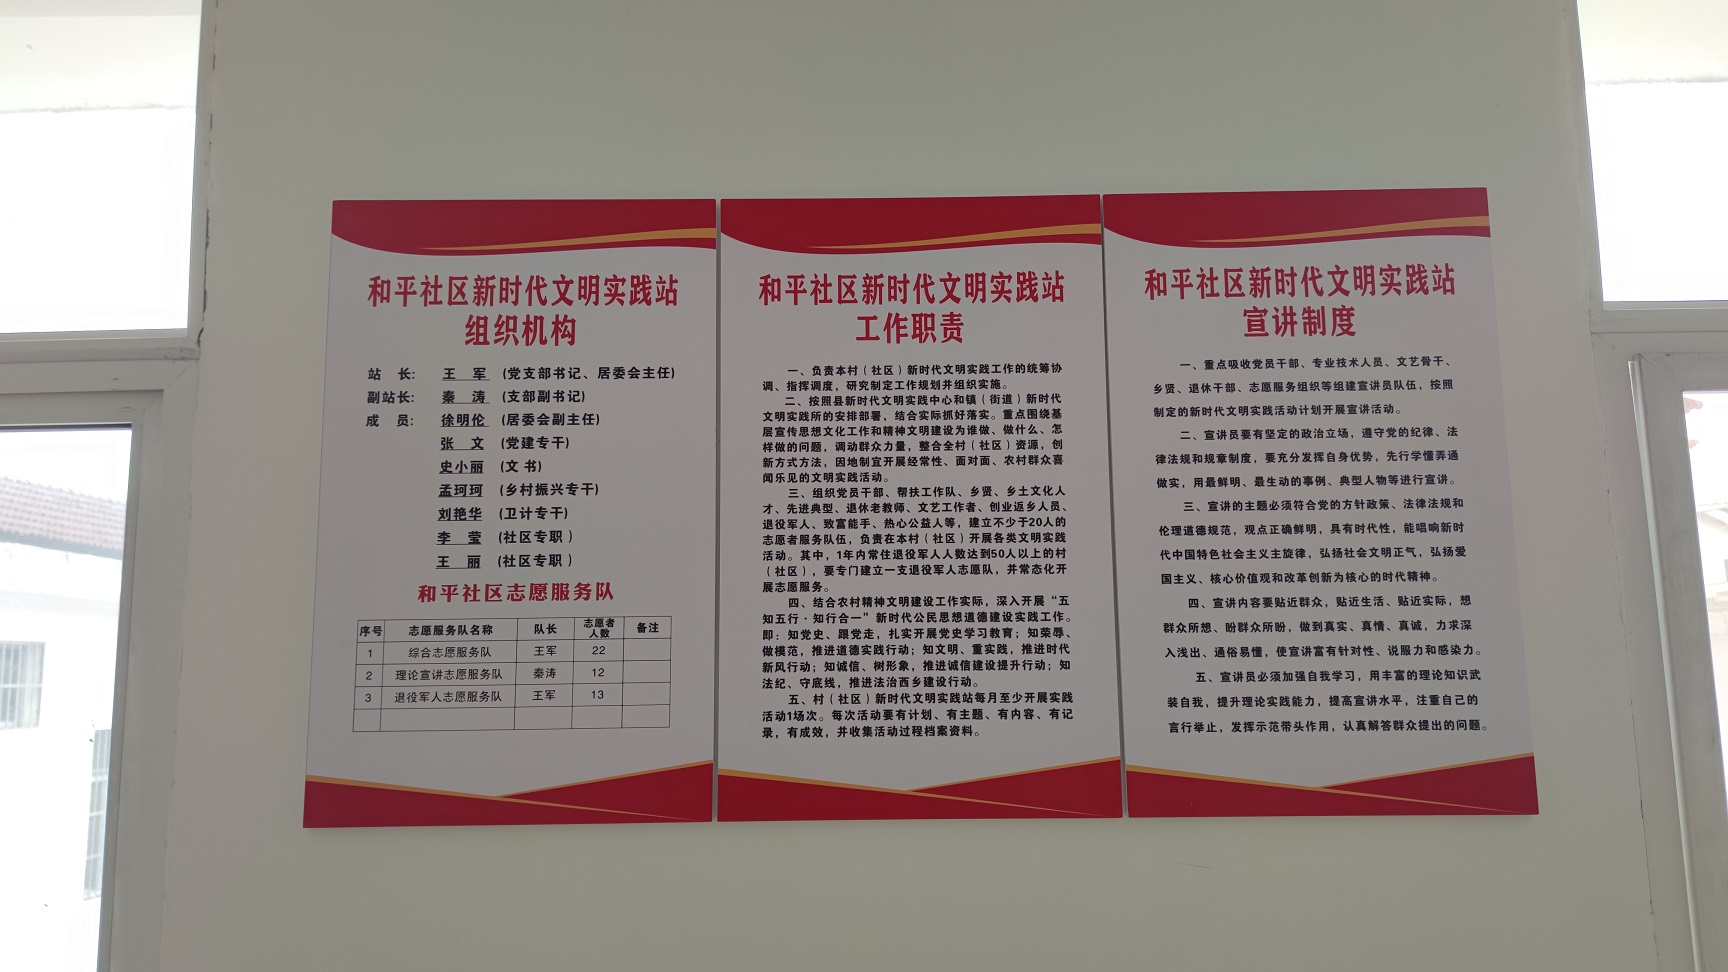 和平社区新时代文明实践站
组织机构
站　长:　王　军　(党支部书记、居委会主任)
副站长:　秦　涛　(支部副书记)
成　员:　徐明伦　(居委会副主任)
张　文　(党建专干)
史小丽　(文 书)
孟珂珂　(乡村振兴专干)
刘艳华　(卫计专干)
李　莹　(社区专职 )
王　丽　(社区专职 )
和平社区志愿服务队
序号 志愿服务队名称 队长 志愿者人数 备注
1 综合志愿服务队 王军 22
2 理论宣讲志愿服务队 秦涛 12
3 退役军人志愿服务队 王军 13
和平社区新时代文明实践站
工作职责
一、负责本村（社区）新时代文明实践工作的统筹协
调、指挥调度，研究制定工作规划并组织实施。
二、按照县新时代文明实践中心和镇（街道）新时代
文明实践所的安排部署，结合实际抓好落实。重点围绕基
层宣传思想文化工作和精神文明建设为谁做、做什么、怎
样做的问题，调动群众力量，整合全村（社区）资源，创
新方式方法，因地制宜开展经常性、面对面、农村群众喜
闻乐见的文明实践活动。
三、组织党员干部、帮扶工作队、乡贤、乡土文化人
才、先进典型、退休老教师、文艺工作者、创业返乡人员、
退役军人、致富能手、热心公益人等，建立不少于20人的
志愿者服务队伍，负责在本村（社区）开展各类文明实践
活动。其中，1年内常住退役军人人数达到50人以上的村
（社区），要专门建立一支退役军人志愿队，并常态化开
展志愿服务。
四、结合农村精神文明建设工作实际，深入开展“五
知五行·知行合一”新时代公民思想道德建设实践工作。
即：知党史、跟党走，扎实开展党史学习教育；知荣辱、
做模范，推进道德实践行动；知文明、重实践，推进时代
新风行动；知诚信、树形象，推进诚信建设提升行动；知
法纪、守底线，推进法治西乡建设行动。
五、村（社区）新时代文明实践站每月至少开展实践
活动1场次。每次活动要有计划、有主题、有内容、有记
录，有成效，并收集活动过程档案资料。
和平社区新时代文明实践站
宣讲制度
一、重点吸收党员干部、专业技术人员、文艺骨干、
乡贤、退休干部、志愿服务组织等组建宣讲员队伍，按照
制定的新时代文明实践活动计划开展宣讲活动。
二、宣讲员要有坚定的政治立场，遵守党的纪律、法
律法规和规章制度，要充分发挥自身优势，先行学懂弄通
做实，用最鲜明、最生动的事例、典型人物等进行宣讲。
三、宣讲的主题必须符合党的方针政策、法律法规和
伦理道德规范，观点正确鲜明，具有时代性，能唱响新时
代中国特色社会主义主旋律，弘扬社会文明正气，弘扬爱
国主义、核心价值观和改革创新为核心的时代精神。
四、宣讲内容要贴近群众，贴近生活、贴近实际，想
群众所想、盼群众所盼，做到真实、真情、真诚，力求深
入浅出、通俗易懂，使宣讲富有针对性、说服力和感染力。
五、宣讲员必须加强自我学习，用丰富的理论知识武
装自我，提升理论实践能力，提高宣讲水平，注重自己的
言行举止，发挥示范带头作用，认真解答群众提出的问题。